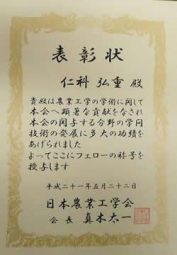 表彰状
仁科 弘重 殿
貴殿は農業工学の学術に関して
本会へ顕著な貢献をなされ
本会の関与する分野の学問
技術の発展に多大の功績を
あげられました
よってここにフェローの称号を
授与します
平成二十一年五月二十二日
日本農業工学会
会長 真木太一